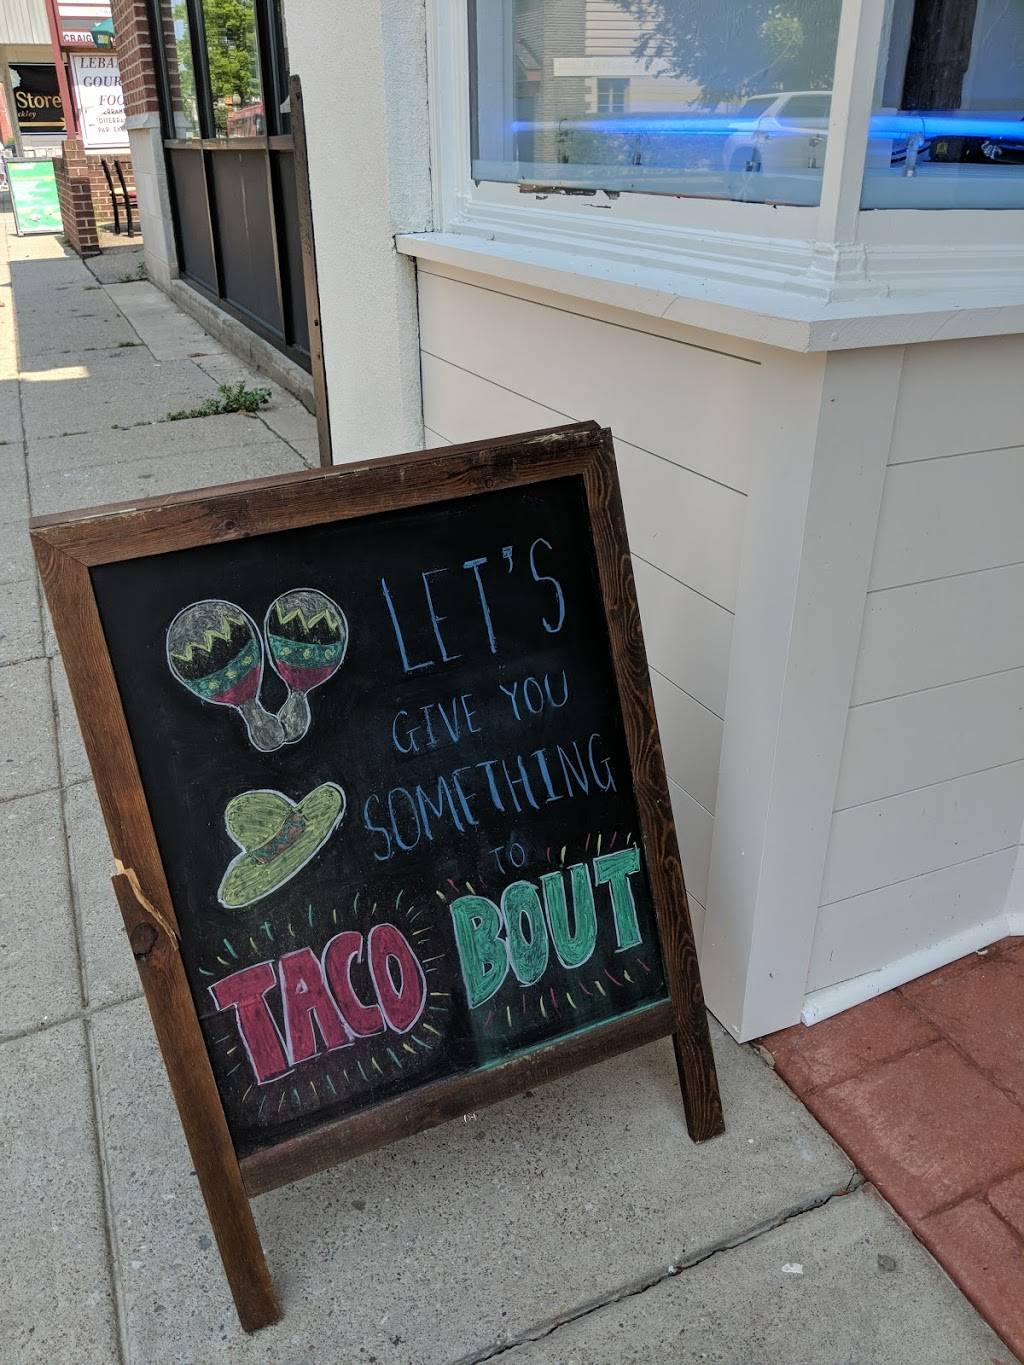 CRAIG
LEBA
GOUR
FOO
Store
kley
LET'S
GIVE YOU
SOMETHING
TO
TACO BOUT